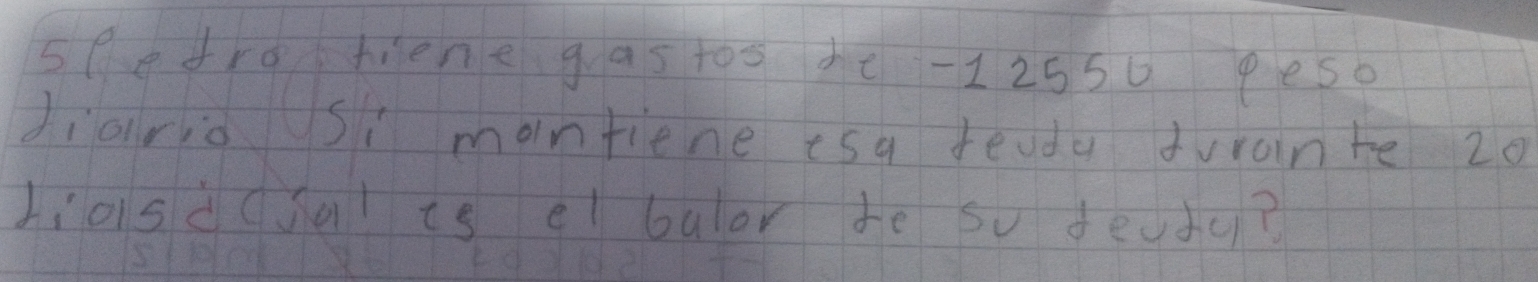 5 Pedro tiene gastos de -12550 peso
diario Si mantiene esa deuda durante 20
dias ¿Cual es el balor de su deuda?